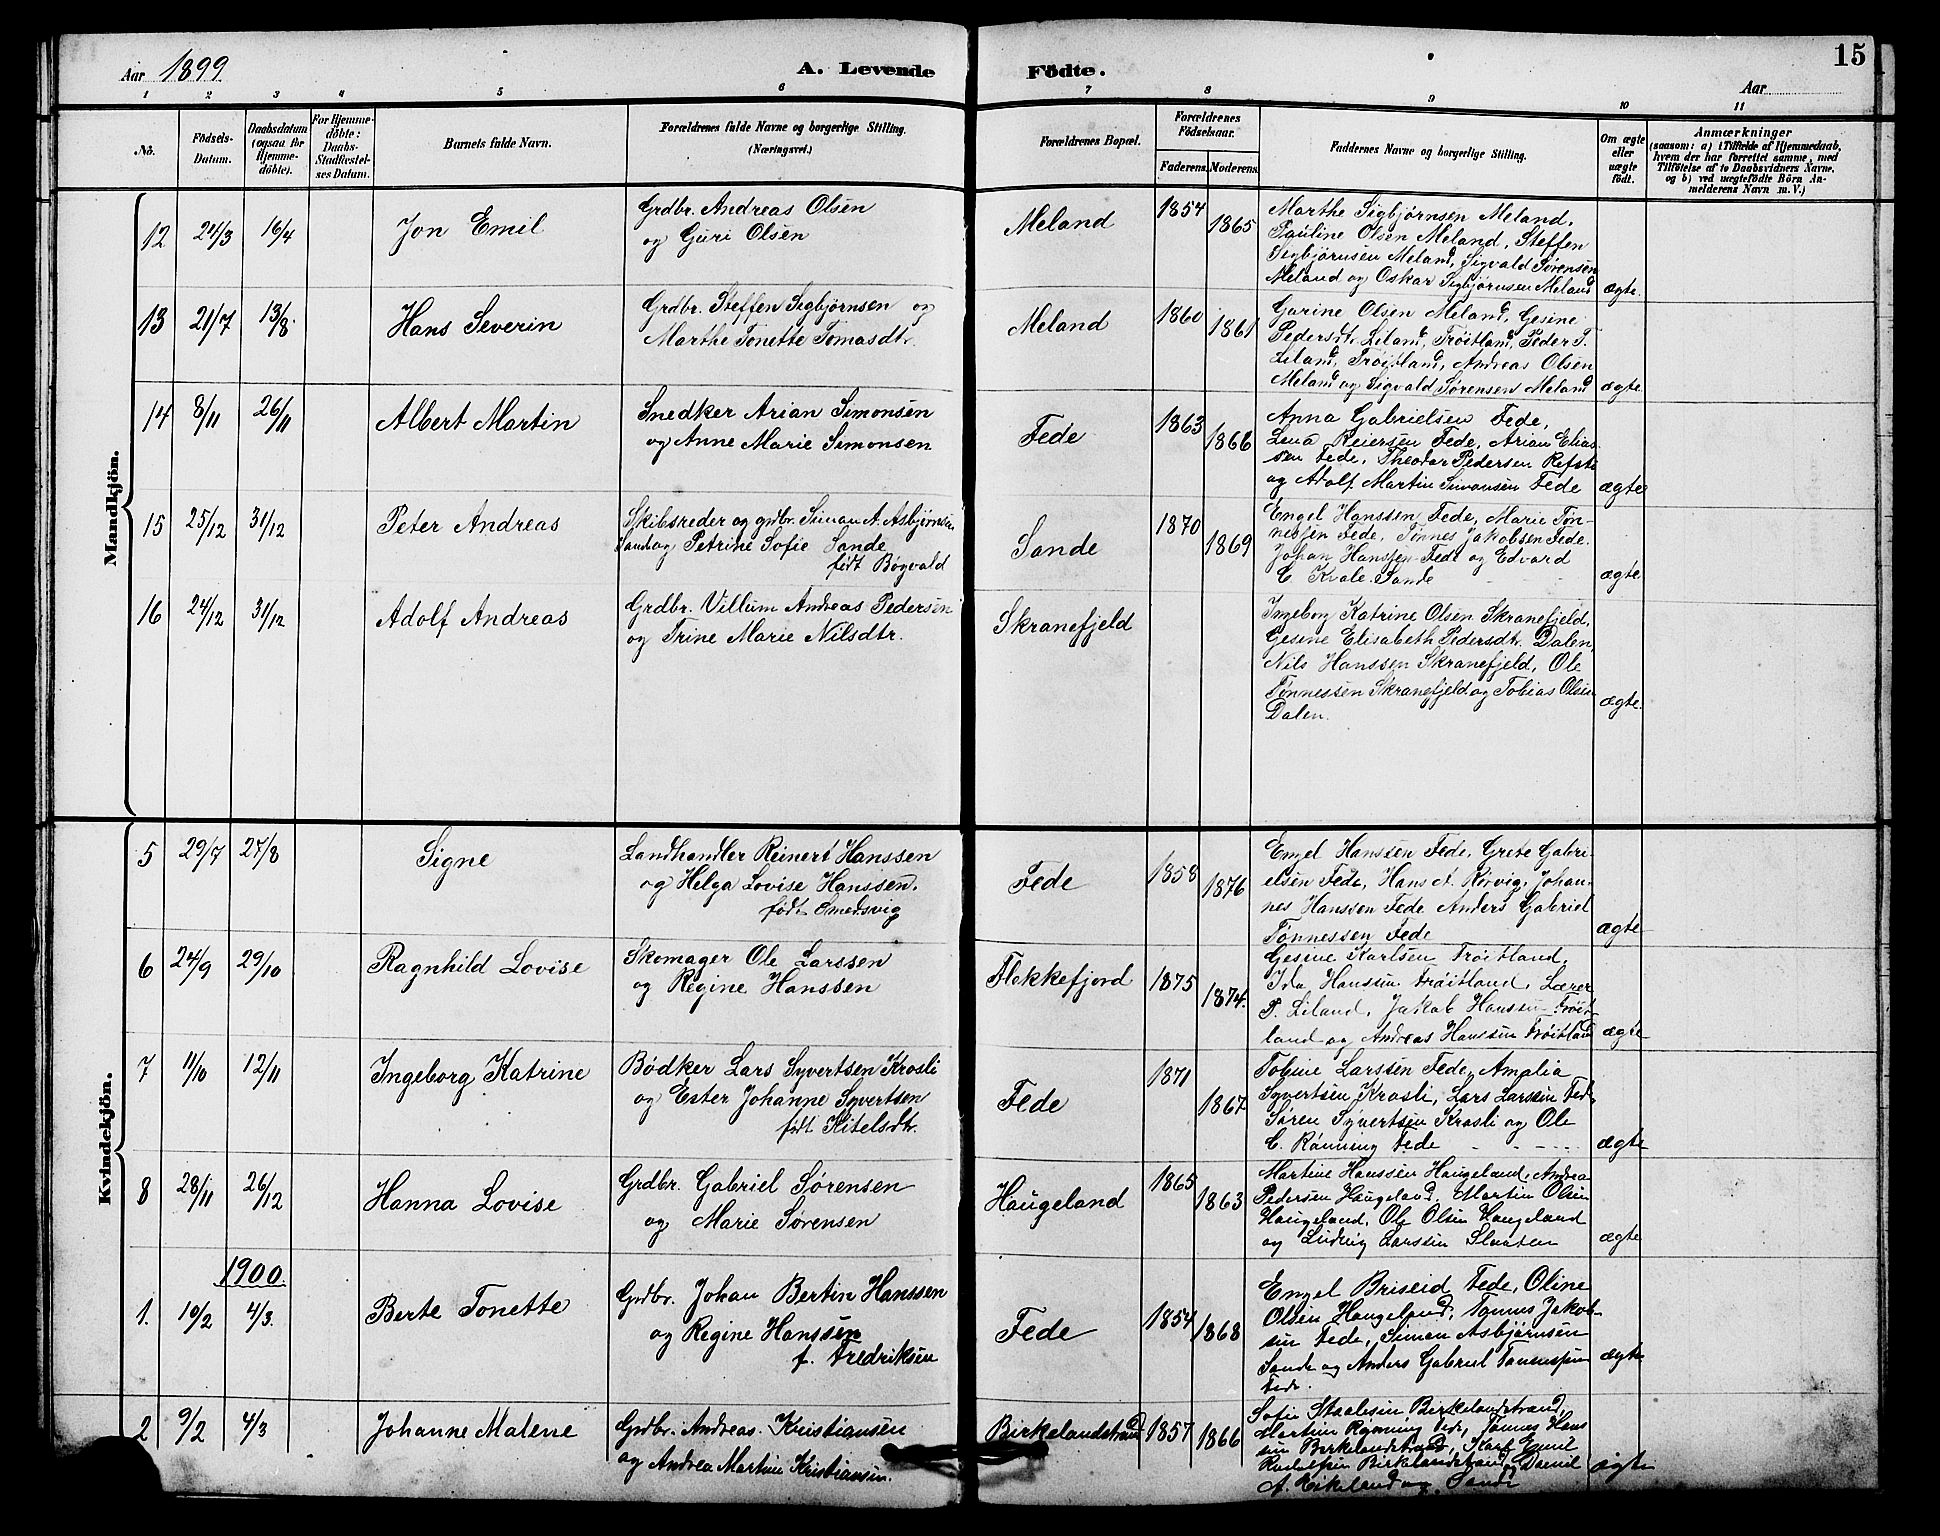 Aar 1899
A. Levende Födte.
Aar
15
1 2 3 4 5 6 7 8 9 10 11
No.
Födsels-Datum.
Daabsdatum (ogsaa for Hjemme-döbte).
For Hjemme-döbte: Daabs-Stadfæstel-ses Datum.
Barnets fulde Navn.
Forældrenes fulde Navne og borgerlige Stilling.
(Næringsvei.)
Forældrenes Bopæl.
Forældrenes Födselsaar.
Faderens. Moderens.
Faddernes Navne og borgerlige Stilling.
Om ægte eller uægte födt.
Anmærkninger
(saasom: a) i Tilfælde af Hjemmedaab,
hvem der har forrettet samme, med
Tilföielse af to Daabsvidners Navne,
og b) ved uægtefödte Börn An-
melderens Navn m. V.)
Mandkjön.
12 24/3 16/4 Jon Emil
Grdbr. Andreas Olsen
og Guri Olsen
Meland 1854 1865
Marthe Sigbjørnsen Meland,
Pauline Olsen Meland, Steffen
Sigbjørnsen Meland, Sigvald Sørensen
Meland og Oskar Sigbjørnsen Meland
ægte.
13 21/7 13/8. Hans Severin
Grdbr. Steffen Sigbjørnsen og
Marthe Tonette Tomasdtr.
Meland 1860 1861
Gurine Olsen Meland, Gesine
Pedersdt. Liland, Trøitland, Peder T.
Liland, Trøitland, Andreas Olsen
Meland og Sigvald Sørensen Meland
ægte.
14 8/11 26/11 Albert Martin
Snedker Arian Simonsen
og Anne Marie Simonsen
Fede 1863 1866
Anna Gabrielsen Fede,
Lena Reiersen Fede, Arian Elias-
sen Fede, Theodor Pedersen Refsti
og Adolf Martin Simonsen Fede
ægte
15 25/12 31/12 Peter Andreas
Skibsreder og grdbr. Simon A. Asbjørnsen
Sande og Petrine Sofie Sande
født Bøgvald
Sande 1870 1869
Engel Hanssen Fede, Marie Tøn-
nessen Fede, Tønnes Jakobsen Fede.
Johan Hanssen Fede og Edvard
C. Kvale Sande
ægte
16 24/12 31/12 Adolf Andreas
Grdbr. Villum Andreas Pedersen
og Trine Marie Nilsdtr.
Skranefjeld
Ingeborg Katrine Olsen Skranefjeld,
Gesine Elisabeth Pedersdtr. Dalen,
Nils Hanssen Skranefjeld, Ole
Tønnessen Skranefjeld og Tobias Olsen
Dalen.
ægte.
Kvindekjön.
5 29/7 27/8 Signe
Landhandler Reinert Hanssen
og Helga Lovise Hanssen.
født Smedsvig
Fede 1858 1876
Engel Hanssen Fede, Grete Gabri-
elsen Fede, Hans A. Rørvig, Johan-
nes Hanssen Fede Anders Gabriel
Tønnessen Fede
ægte
6 24/9 29/10 Ragnhild Lovise
Skomager Ole Larssen
og Regine Hanssen
Flekkefjord 1875 1874.
Gesine Karlsen Trøitland,
Ida Hanssen Trøitland, Lærer
P. Liland, Jakob Hanssen Trøit-
land og Andreas Hanssen Trøitland
ægte
7 11/10 12/11 Ingeborg Katrine
Bødker Lars Syvertsen Krosli
og Ester Johanne Syvertsen
født Kitelsdtr.
Fede 1871 1867
Tobine Larssen Fede, Amalia
Syvertsen Krosli, Lars Larssen Fede,
Søren Syvertsen Krosli og Ole
C. Rønning Fede
ægte
8 28/11 26/12 Hanna Lovise
Grdbr. Gabriel Sørensen
og Marie Sørensen
Haugeland 1865 1863
Martine Hanssen Haugeland, Andrea
Pedersen Haugeland, Martin Olsen
Haugeland, Ole Olsen Haugeland
og Ludvig Larssen Slaaten
ægte
1900.
1. 10/2 4/3. Berte Tonette
Grdbr. Johan Bertin Hanssen
og Regine Hanssen
f. Fredriksen
Fede 1854 1868
Engel Briseid Fede, Oline
Olsen Haugeland, Tønnes Jakob-
sen Fede, Simon Asbjørnsen
Sande og Anders Gabriel Tønnessen
Fede.
ægte
2 9/2 4/3 Johanne Malene
Grdbr. Andreas Kristiansen
og Andrea Martine Kristiansen.
Birkelandstrand 1857 1866
Sofie Staalesen Birkelandstrand,
Martine Rønning Fede, Tønnes Hans
sen Birkelandstrand, Karl Emil
Rudolfsen Birkelandstrand, Daniel
A. Eikeland og Sande
ægte